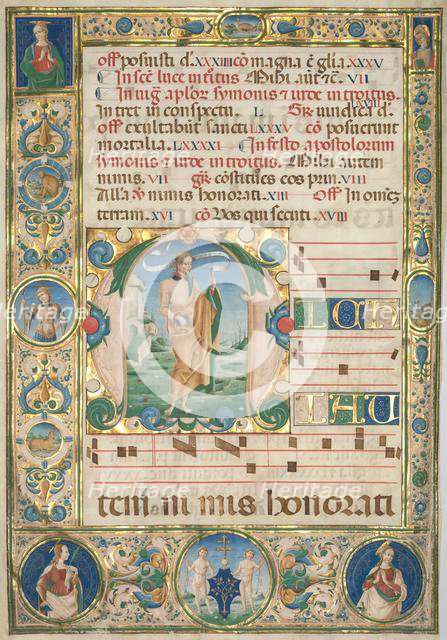 off posuisti d. XXXIII cō magna ē glia XXXV
In scē luce intitus Mihi aut ē. VII
In uig̅ aplor symonis & iude in troitus.
LXXVII
In tret in conspectu. L Gr̄ uindica d.
off exultabūt sancti LXXXV cō posuerunt
mortalia. LXXXXI In festo apostolorum
symonis & iude in troitus. Mihi autem
nimis. VII gr̄ cōstitues eos prin. VIII
Alla ℣ nimis honorati. XIII Off In omnē
terram. XVI cō Vos qui secuti. XVIII
M ICHI
IAU
tem ni mis honorati
Heritage
Heritage
Heritage
Heritage
Heritage
Heritage